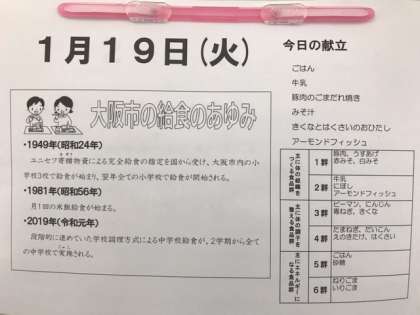 1月19日(火)
今日の献立
ごはん
牛乳
豚肉のごまだれ焼き
みそ汁
きくなとはくさいのおひたし
アーモンドフィッシュ
大阪市の給食のあゆみ
・1949年(昭和24年)
ユニセフ寄贈物資による完全給食の指定を国から受け、大阪市内の小
学校3校で給食が始まり、翌年全ての小学校で給食が開始される。
・1981年(昭和56年)
月1回の米飯給食が始まる。
・2019年(令和元年)
段階的に進めていた学校調理方式による中学校給食が、2学期から全て
の中学校で実施される。
主に体の組織を
つくる食品群
1群
豚肉、うすあげ
赤みそ、白みそ
2群
牛乳
にぼし
アーモンドフィッシュ
主に体の調子を
整える食品群
3群
ピーマン、にんじん
青ねぎ、きくな
4群
たまねぎ、だいこん
えのきたけ、はくさい
主にエネルギーに
なる食品群
5群
ごはん
砂糖
6群
ねりごま
いりごま